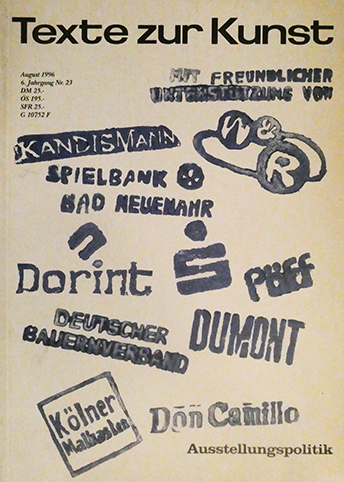 Texte zur Kunst
August 1996
6. Jahrgang Nr. 23
DM 25.-
ÖS 195.-
SFR 25.-
G 10752 F
MIT FREUNDLICHER
UNTERSTÜTZUNG VON
KANDISMANN
W&R
SPIELBANK
BAD NEUENAHR
Dorint
S
PÜFF
DEUTSCHER
BAUERNVERBAND
DUMONT
Kölner
Malkasten
Don Camillo
Ausstellungspolitik